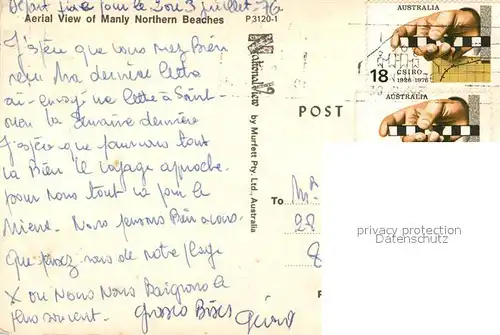 Départ fixé pour le 2 ou 3 juillet 76
Aerial View of Manly Northern Beaches P3120-1
J'espère que vous avez Bien
reçu Ma dernière lettre
ai envoyé une lettre à Saint-
la Semaine dernière
J'espère que pour vous tout
va Bien le voyage approche
pour nous tout va pour le
Mieux. Nous pensons Bien à vous.
Que pensez vous de notre plage
X ou Nous Nous Baignons le
plus souvent. Grosses Bises
Nationalview
by Murfett Pty. Ltd., Australia
POST
To
28
8
AUSTRALIA
18
CSIRO
1926-1976
AUSTRALIA
privacy protection
Datenschutz